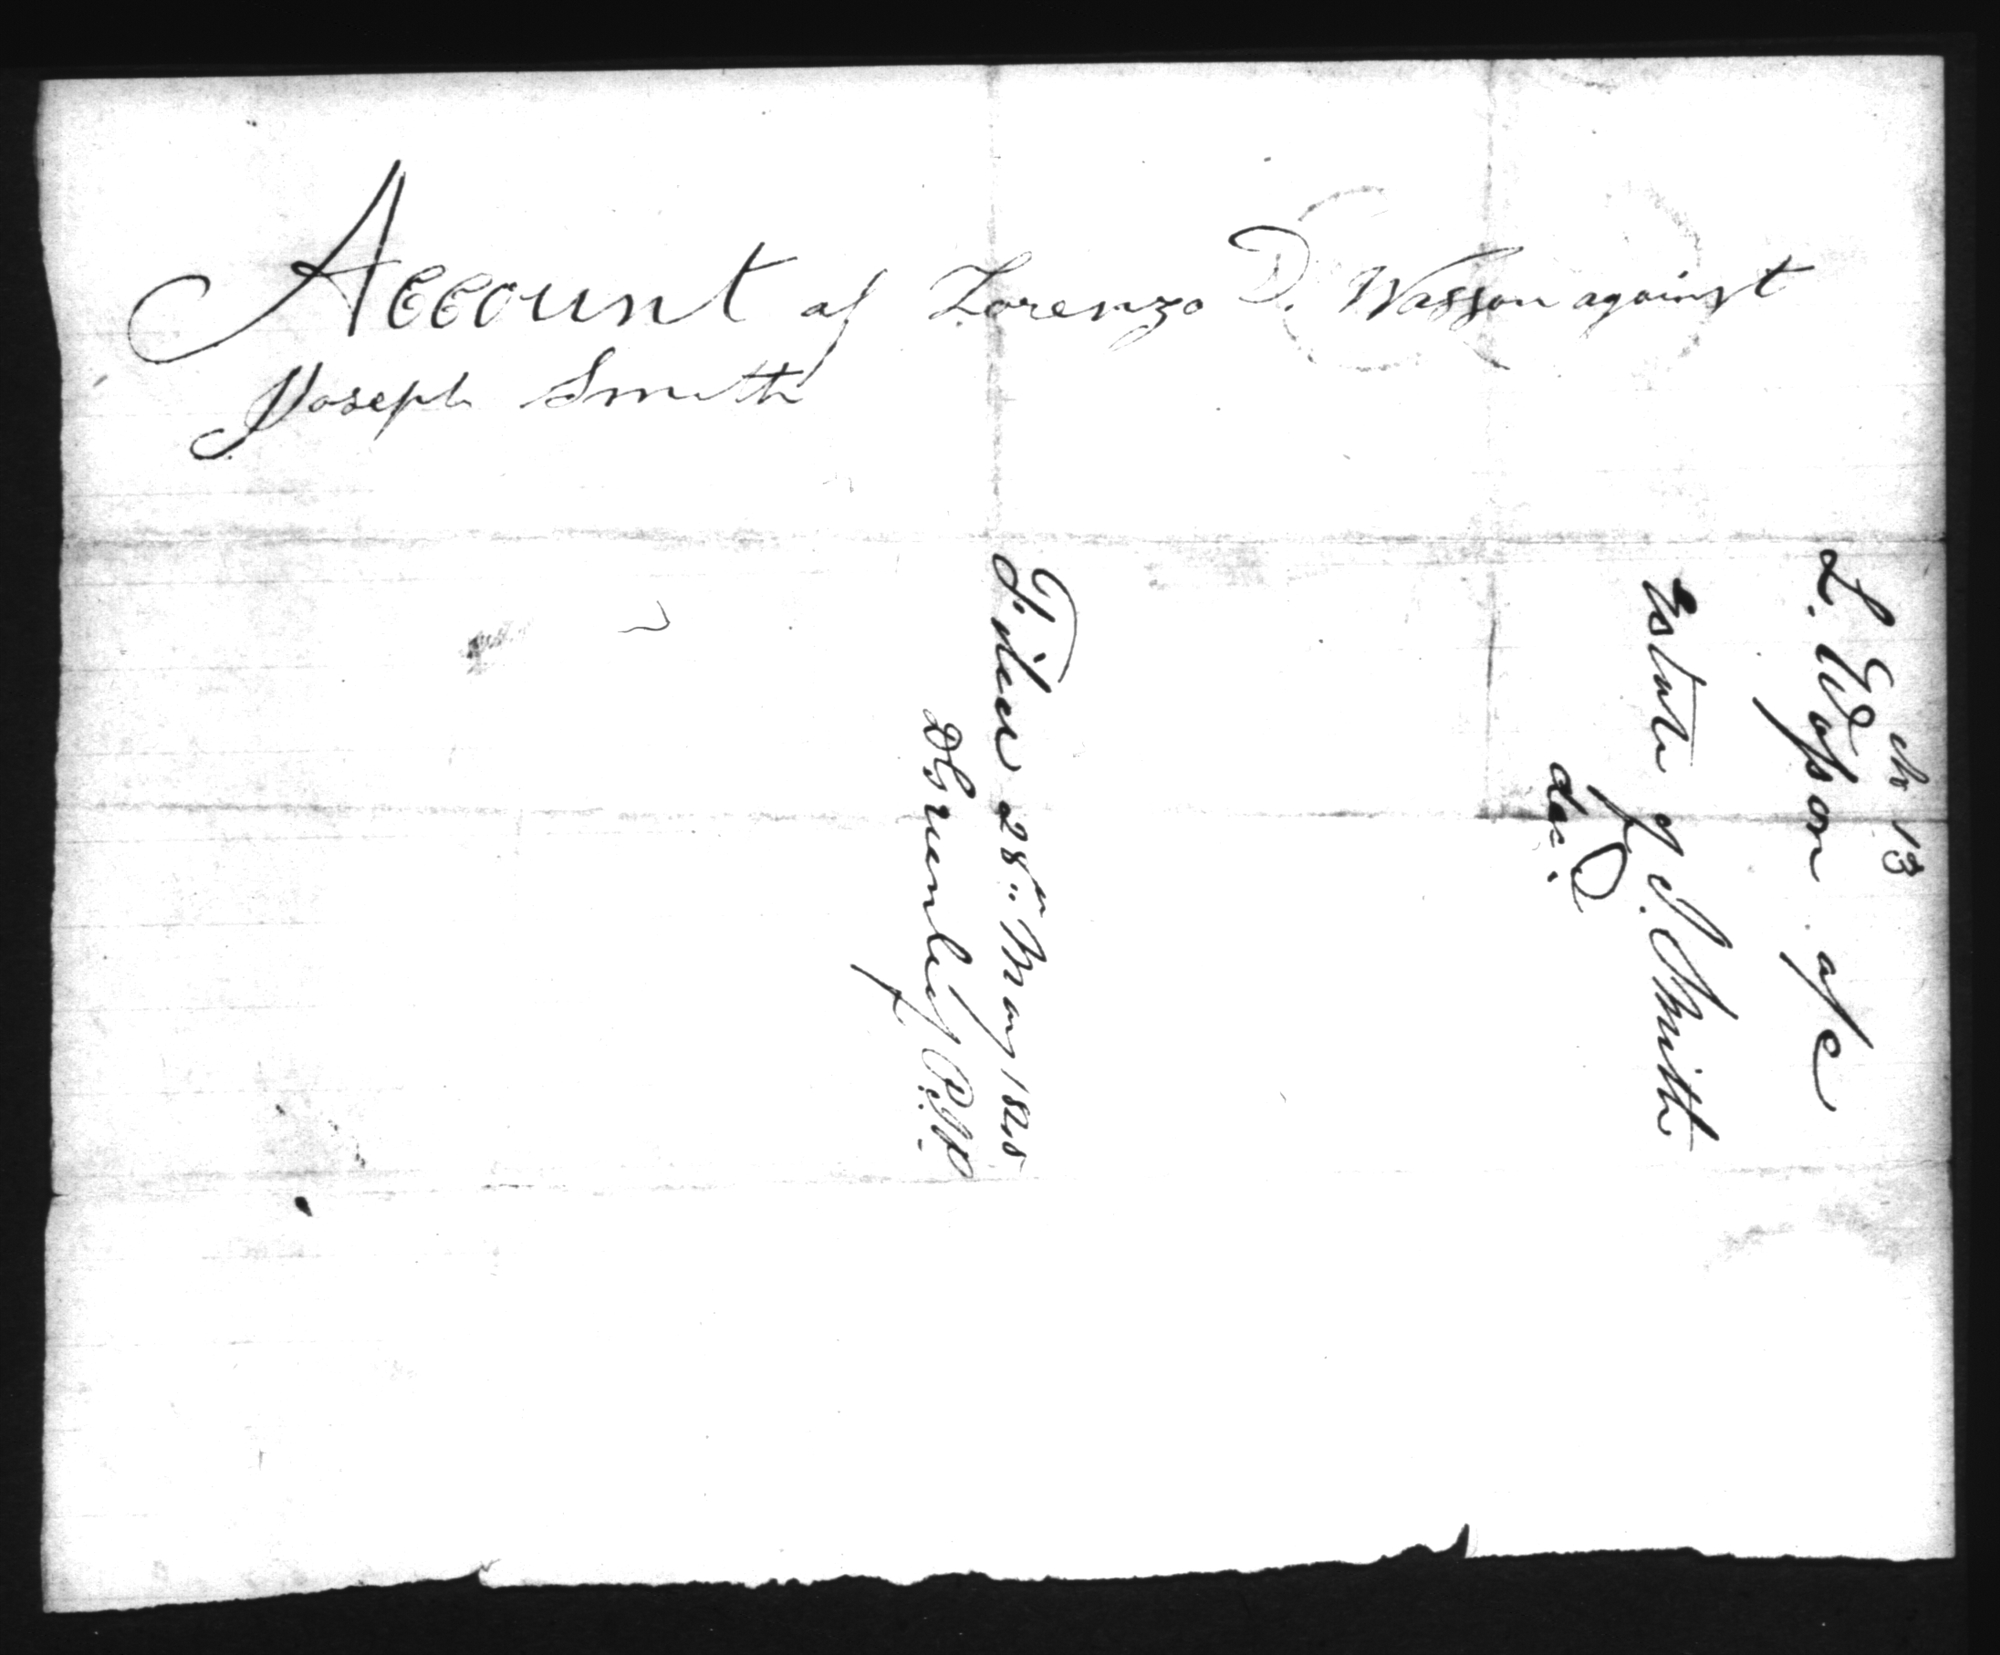 Account of Lorenzo D. Wasson against
Joseph Smith
No 13
L. Wasson a/c
Estate of J. Smith
dec.
Filed 28th May 1845
D Greenleaf P.J.P.